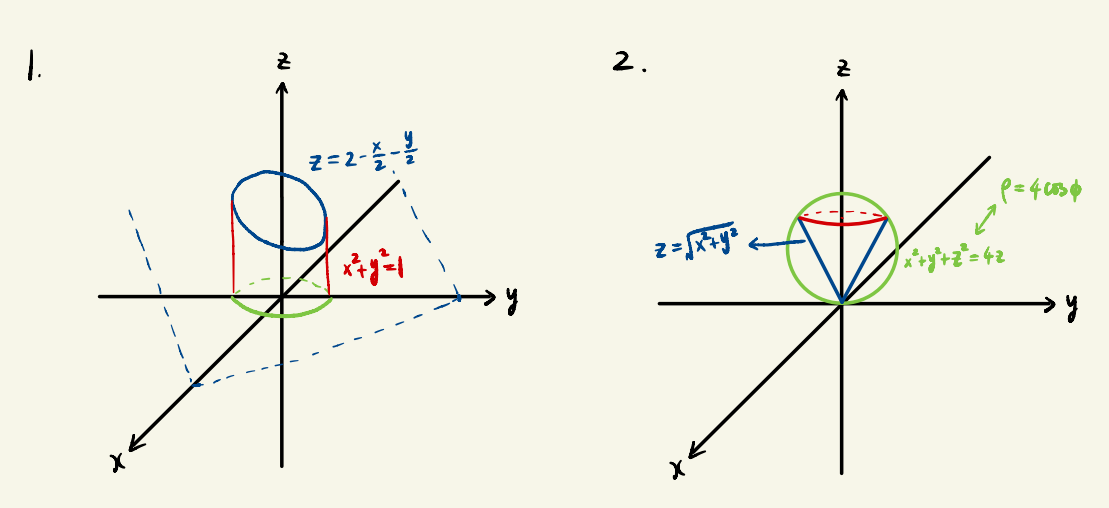 1.
z
z = 2 - x/2 - y/2
x²+y²=1
y
x
2.
z
ρ = 4cosϕ
z = √x²+y²
x²+y²+z² = 4z
y
x